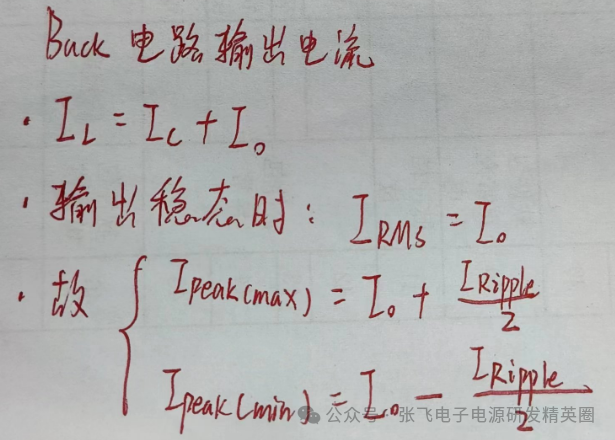 Buck 电路输出电流
· I_L = I_C + I_o
· 输出稳态时: I_RMS = I_o
· 故 { I_peak(max) = I_o + I_Ripple/2
I_peak(min) = I_o - I_Ripple/2
公众号·张飞电子电源研发精英圈